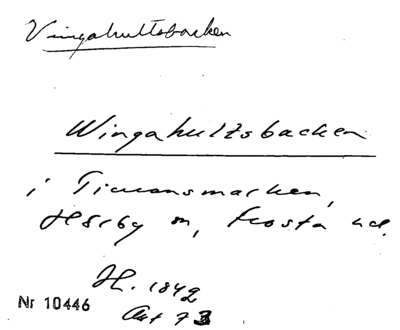 Vingahultsbacken
Wingahultsbacken
i Ticuonsmarken,
Hörby sn, Frosta hd.
H. 1842
Akt 73
Nr 10446